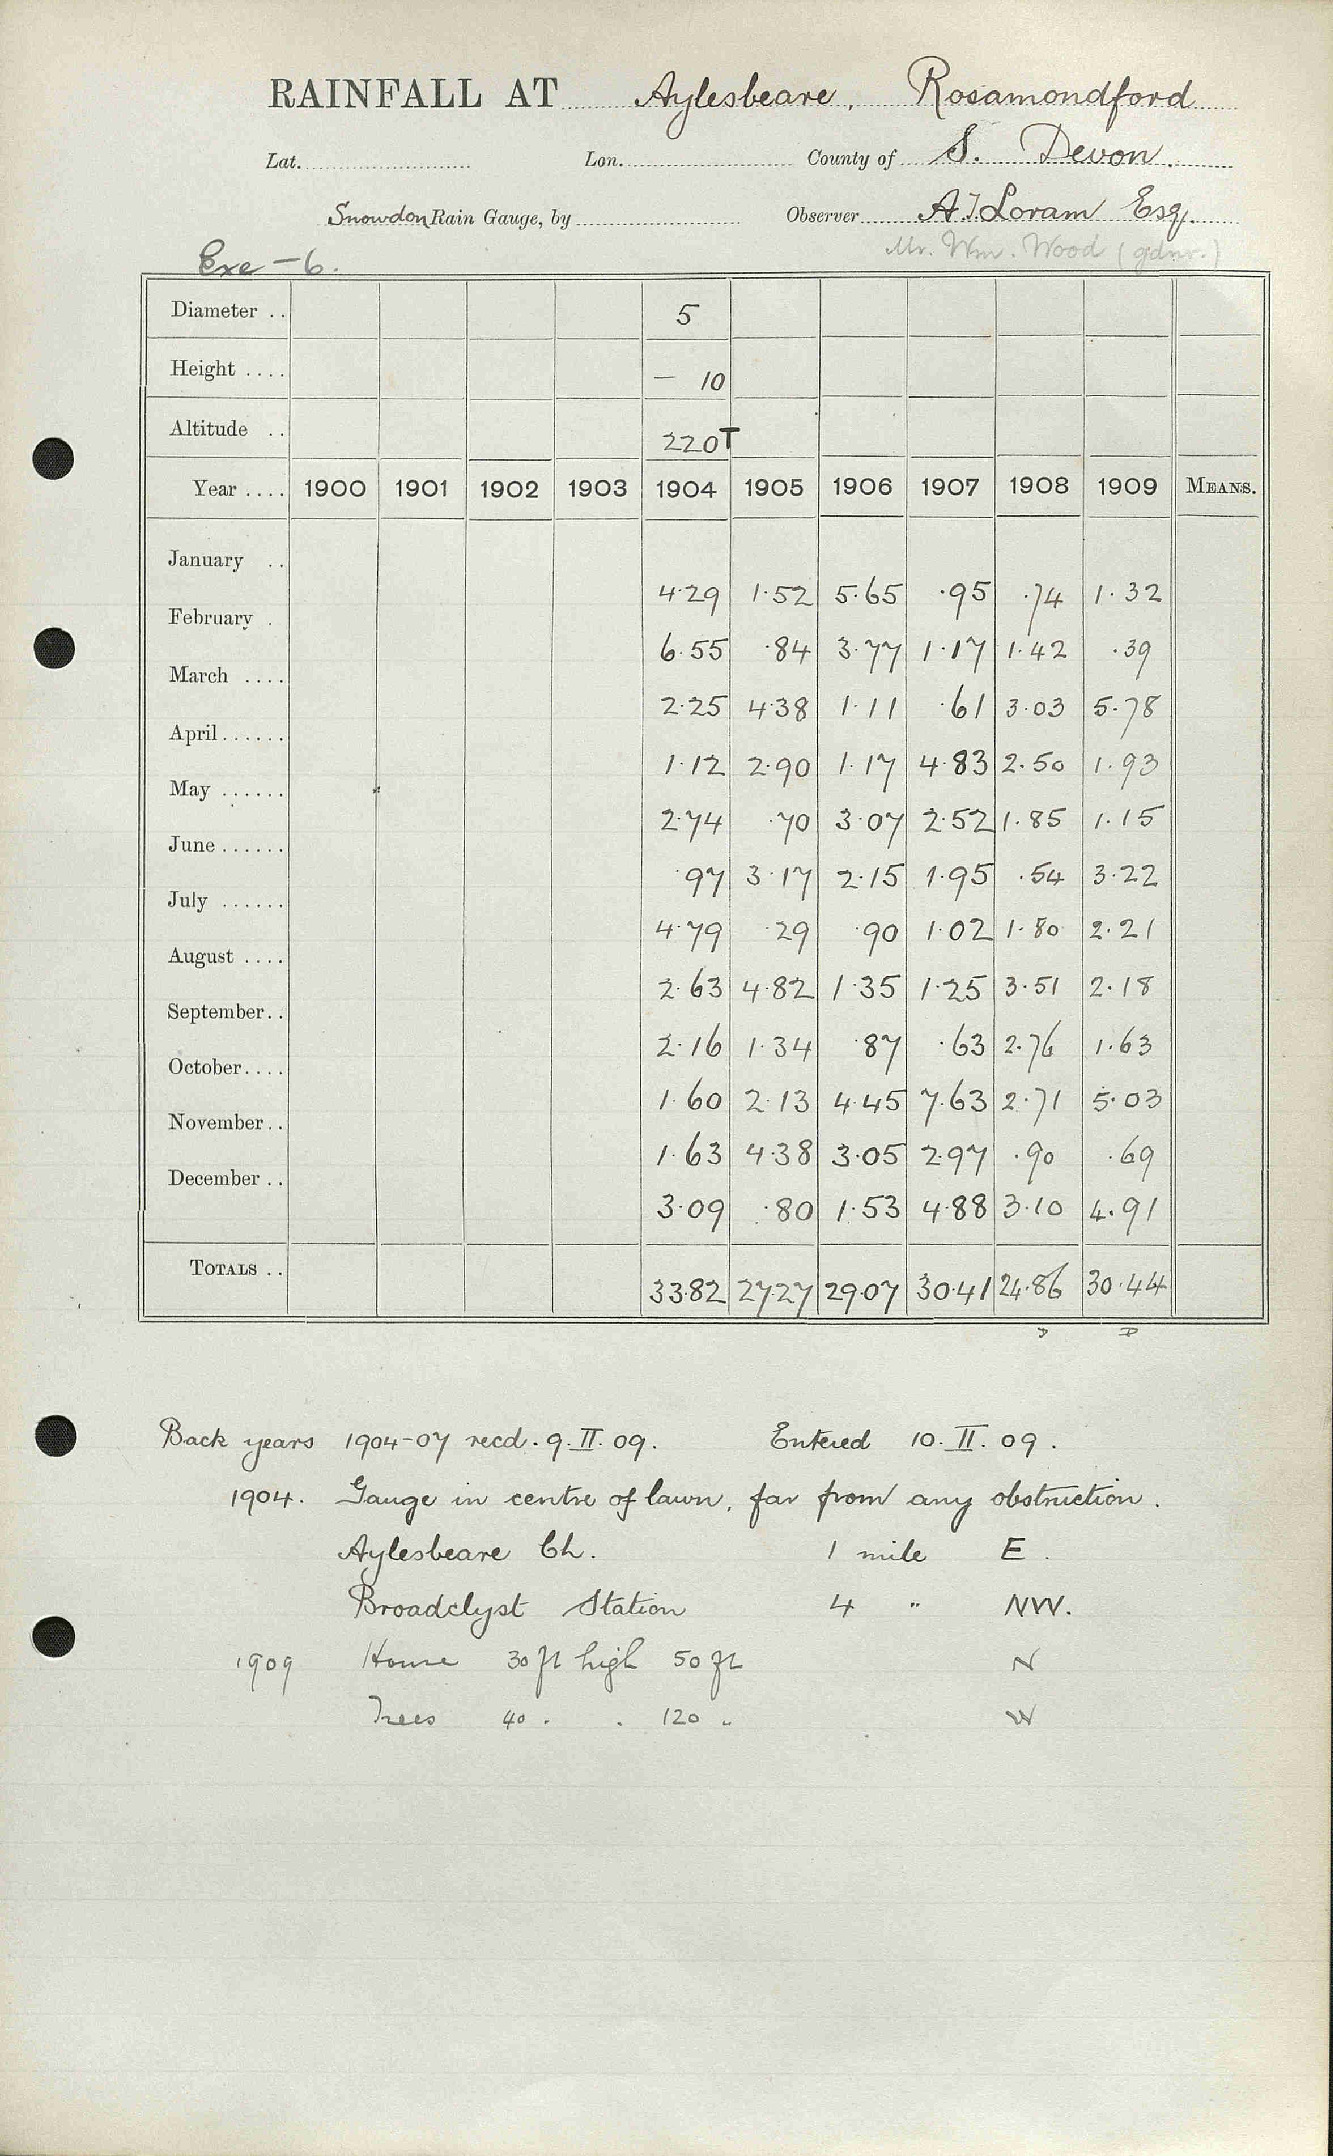 RAINFALL AT Aylesbeare, Rosamondford
Lat. Lon. County of S. Devon.
Snowdon Rain Gauge, by Observer A J Loram Esq.
Mr. Wm. Wood (gdnr.)
Exe - 6.
Diameter .. 5
Height .... — 10
Altitude .. 220T
Year .... 1900 1901 1902 1903 1904 1905 1906 1907 1908 1909 MEANS.
January .. 4.29 1.52 5.65 .95 .74 1.32
February . 6.55 .84 3.77 1.17 1.42 .39
March .... 2.25 4.38 1.11 .61 3.03 5.78
April ...... 1.12 2.90 1.17 4.83 2.50 1.93
May ...... 2.74 .70 3.07 2.52 1.85 1.15
June ...... .97 3.17 2.15 1.95 .54 3.22
July ...... 4.79 .29 .90 1.02 1.80 2.21
August .... 2.63 4.82 1.35 1.25 3.51 2.18
September.. 2.16 1.34 .87 .63 2.76 1.63
October.... 1.60 2.13 4.45 7.63 2.71 5.03
November.. 1.63 4.38 3.05 2.97 .90 .69
December .. 3.09 .80 1.53 4.88 3.10 4.91
TOTALS .. 33.82 27.27 29.07 30.41 24.86 30.44
Back years 1904-07 recd. 9.II.09. Entered 10.II.09.
1904. Gauge in centre of lawn, far from any obstruction.
Aylesbeare Ch. 1 mile E.
Broadclyst Station 4 " NW.
1909 House 30 ft high 50 ft N
Trees 40 . . 120 " W